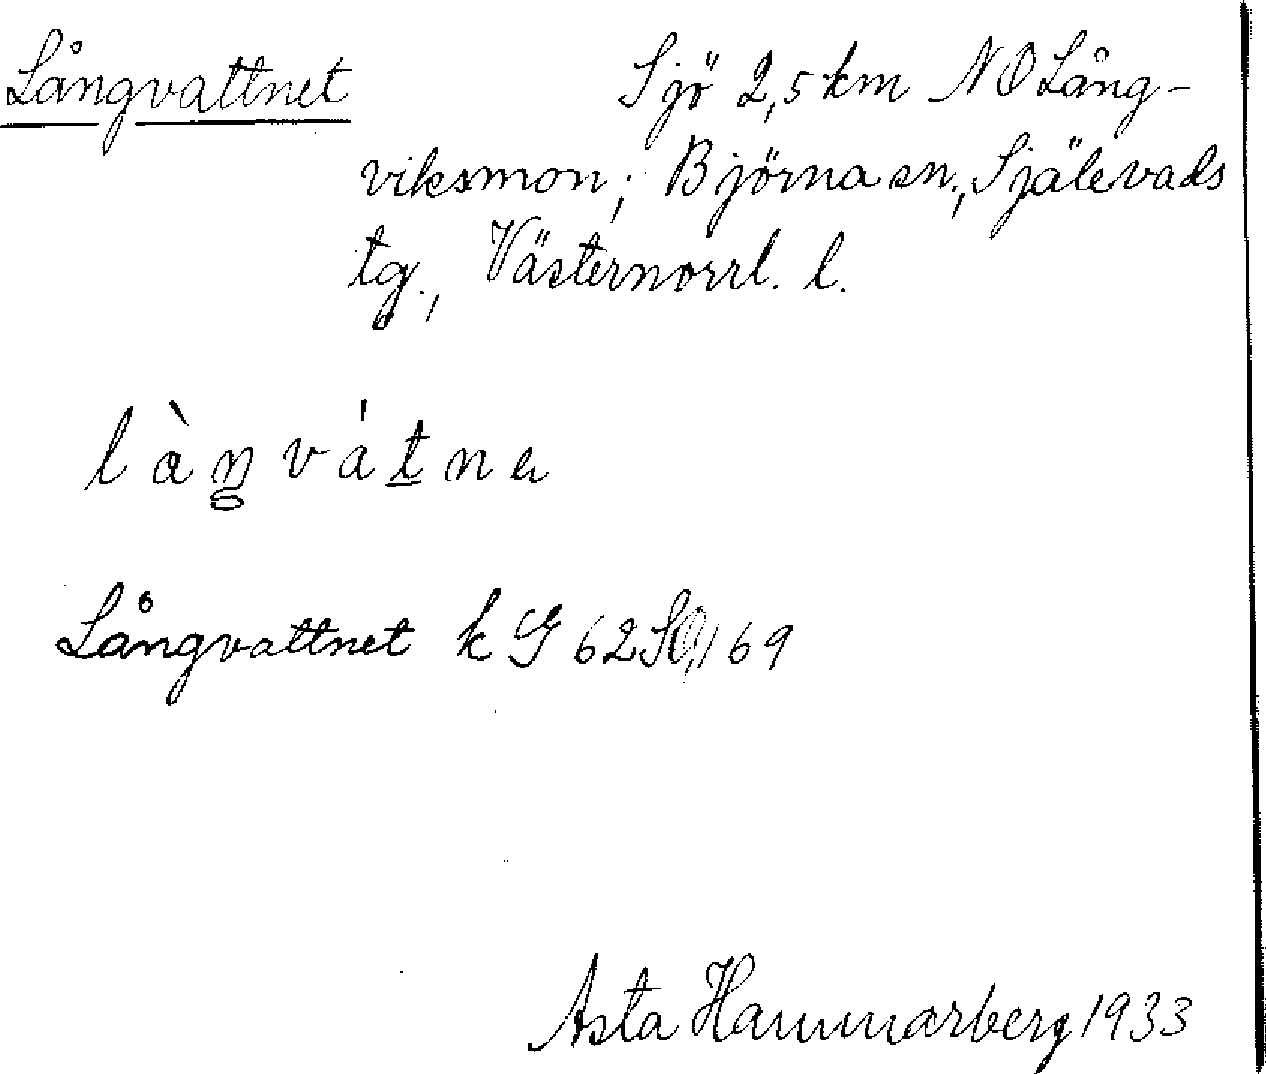 Långvattnet Sjö 2,5 km NO Lång-
viksmon; Björna sn., Själevads
tg., Västernorrl. l.
làŋvátnɐ
Långvattnet k G 62 SO, 169
Asta Hammarberg 1933